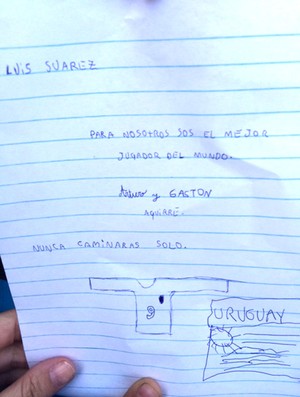 LUIS SUAREZ
PARA NOSOTROS SOS EL MEJOR
JUGADOR DEL MUNDO.
y GASTON
AGUIRRE.
NUNCA CAMINARAS SOLO.
9
URUGUAY